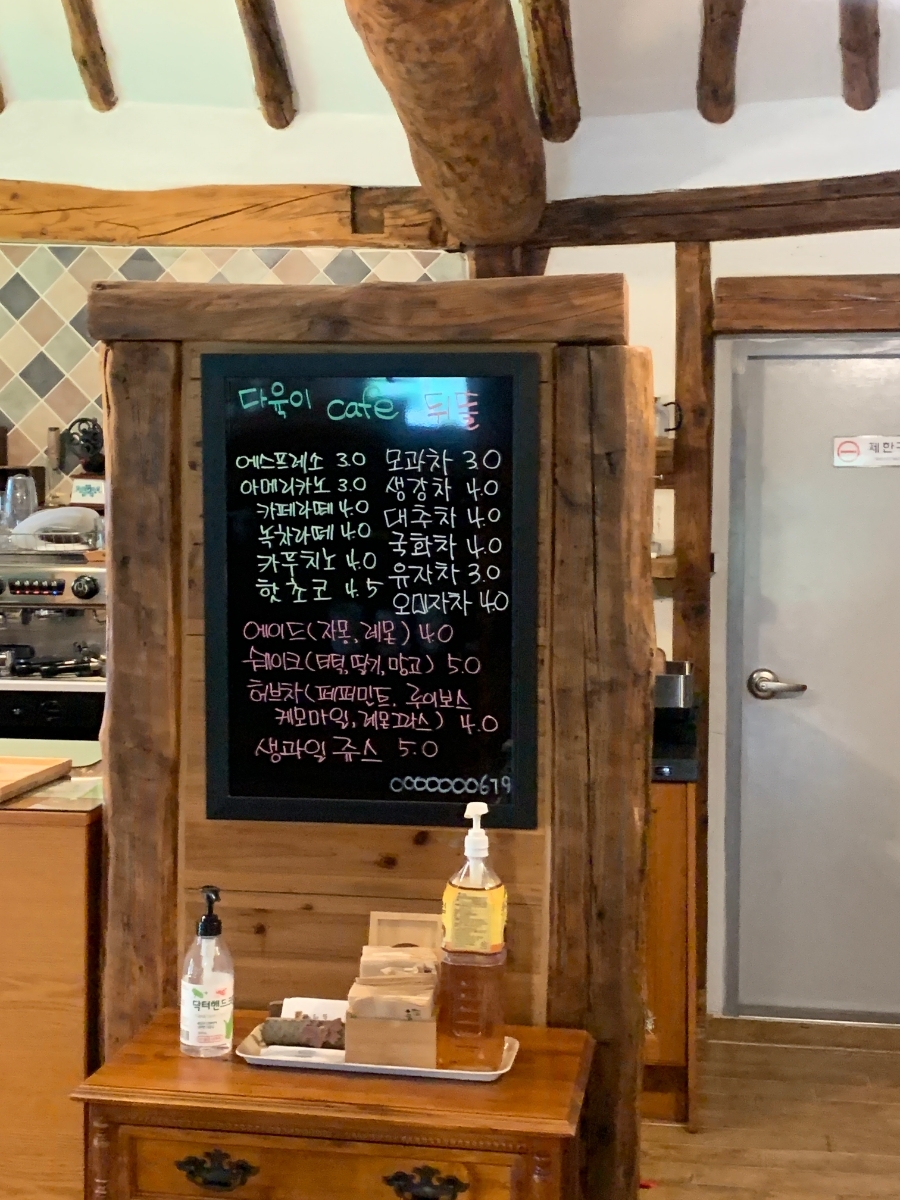 다육이 cafe 뒤뜰
에스프레소 3.0
아메리카노 3.0
카페라떼 4.0
녹차라떼 4.0
카푸치노 4.0
핫초코 4.5
모과차 3.0
생강차 4.0
대추차 4.0
국화차 4.0
유자차 3.0
오미자차 4.0
에이드(자몽, 레몬) 4.0
쉐이크(밀크, 딸기, 망고) 5.0
허브차(페퍼민트, 루이보스
케모마일, 레몬그라스) 4.0
생과일 쥬스 5.0
닥터핸드
제한구